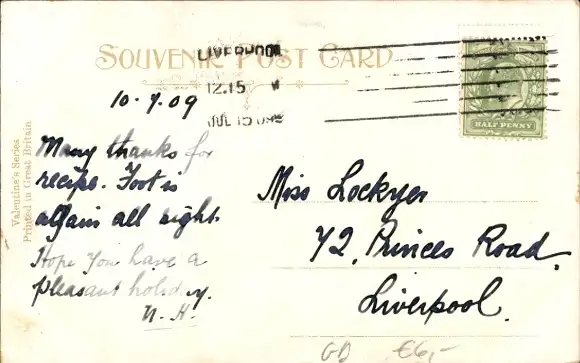 SOUVENIR POST CARD
LIVERPOOL
12.15
JUL 15 09
HALF PENNY
10.7.09
Many thanks for
recipe. Foot is
again all right.
Hope you have a
pleasant holiday.
N. H.
Miss Lockyer
72, Princes Road,
Liverpool.
Valentine's Series
Printed in Great Britain
GB €6,-